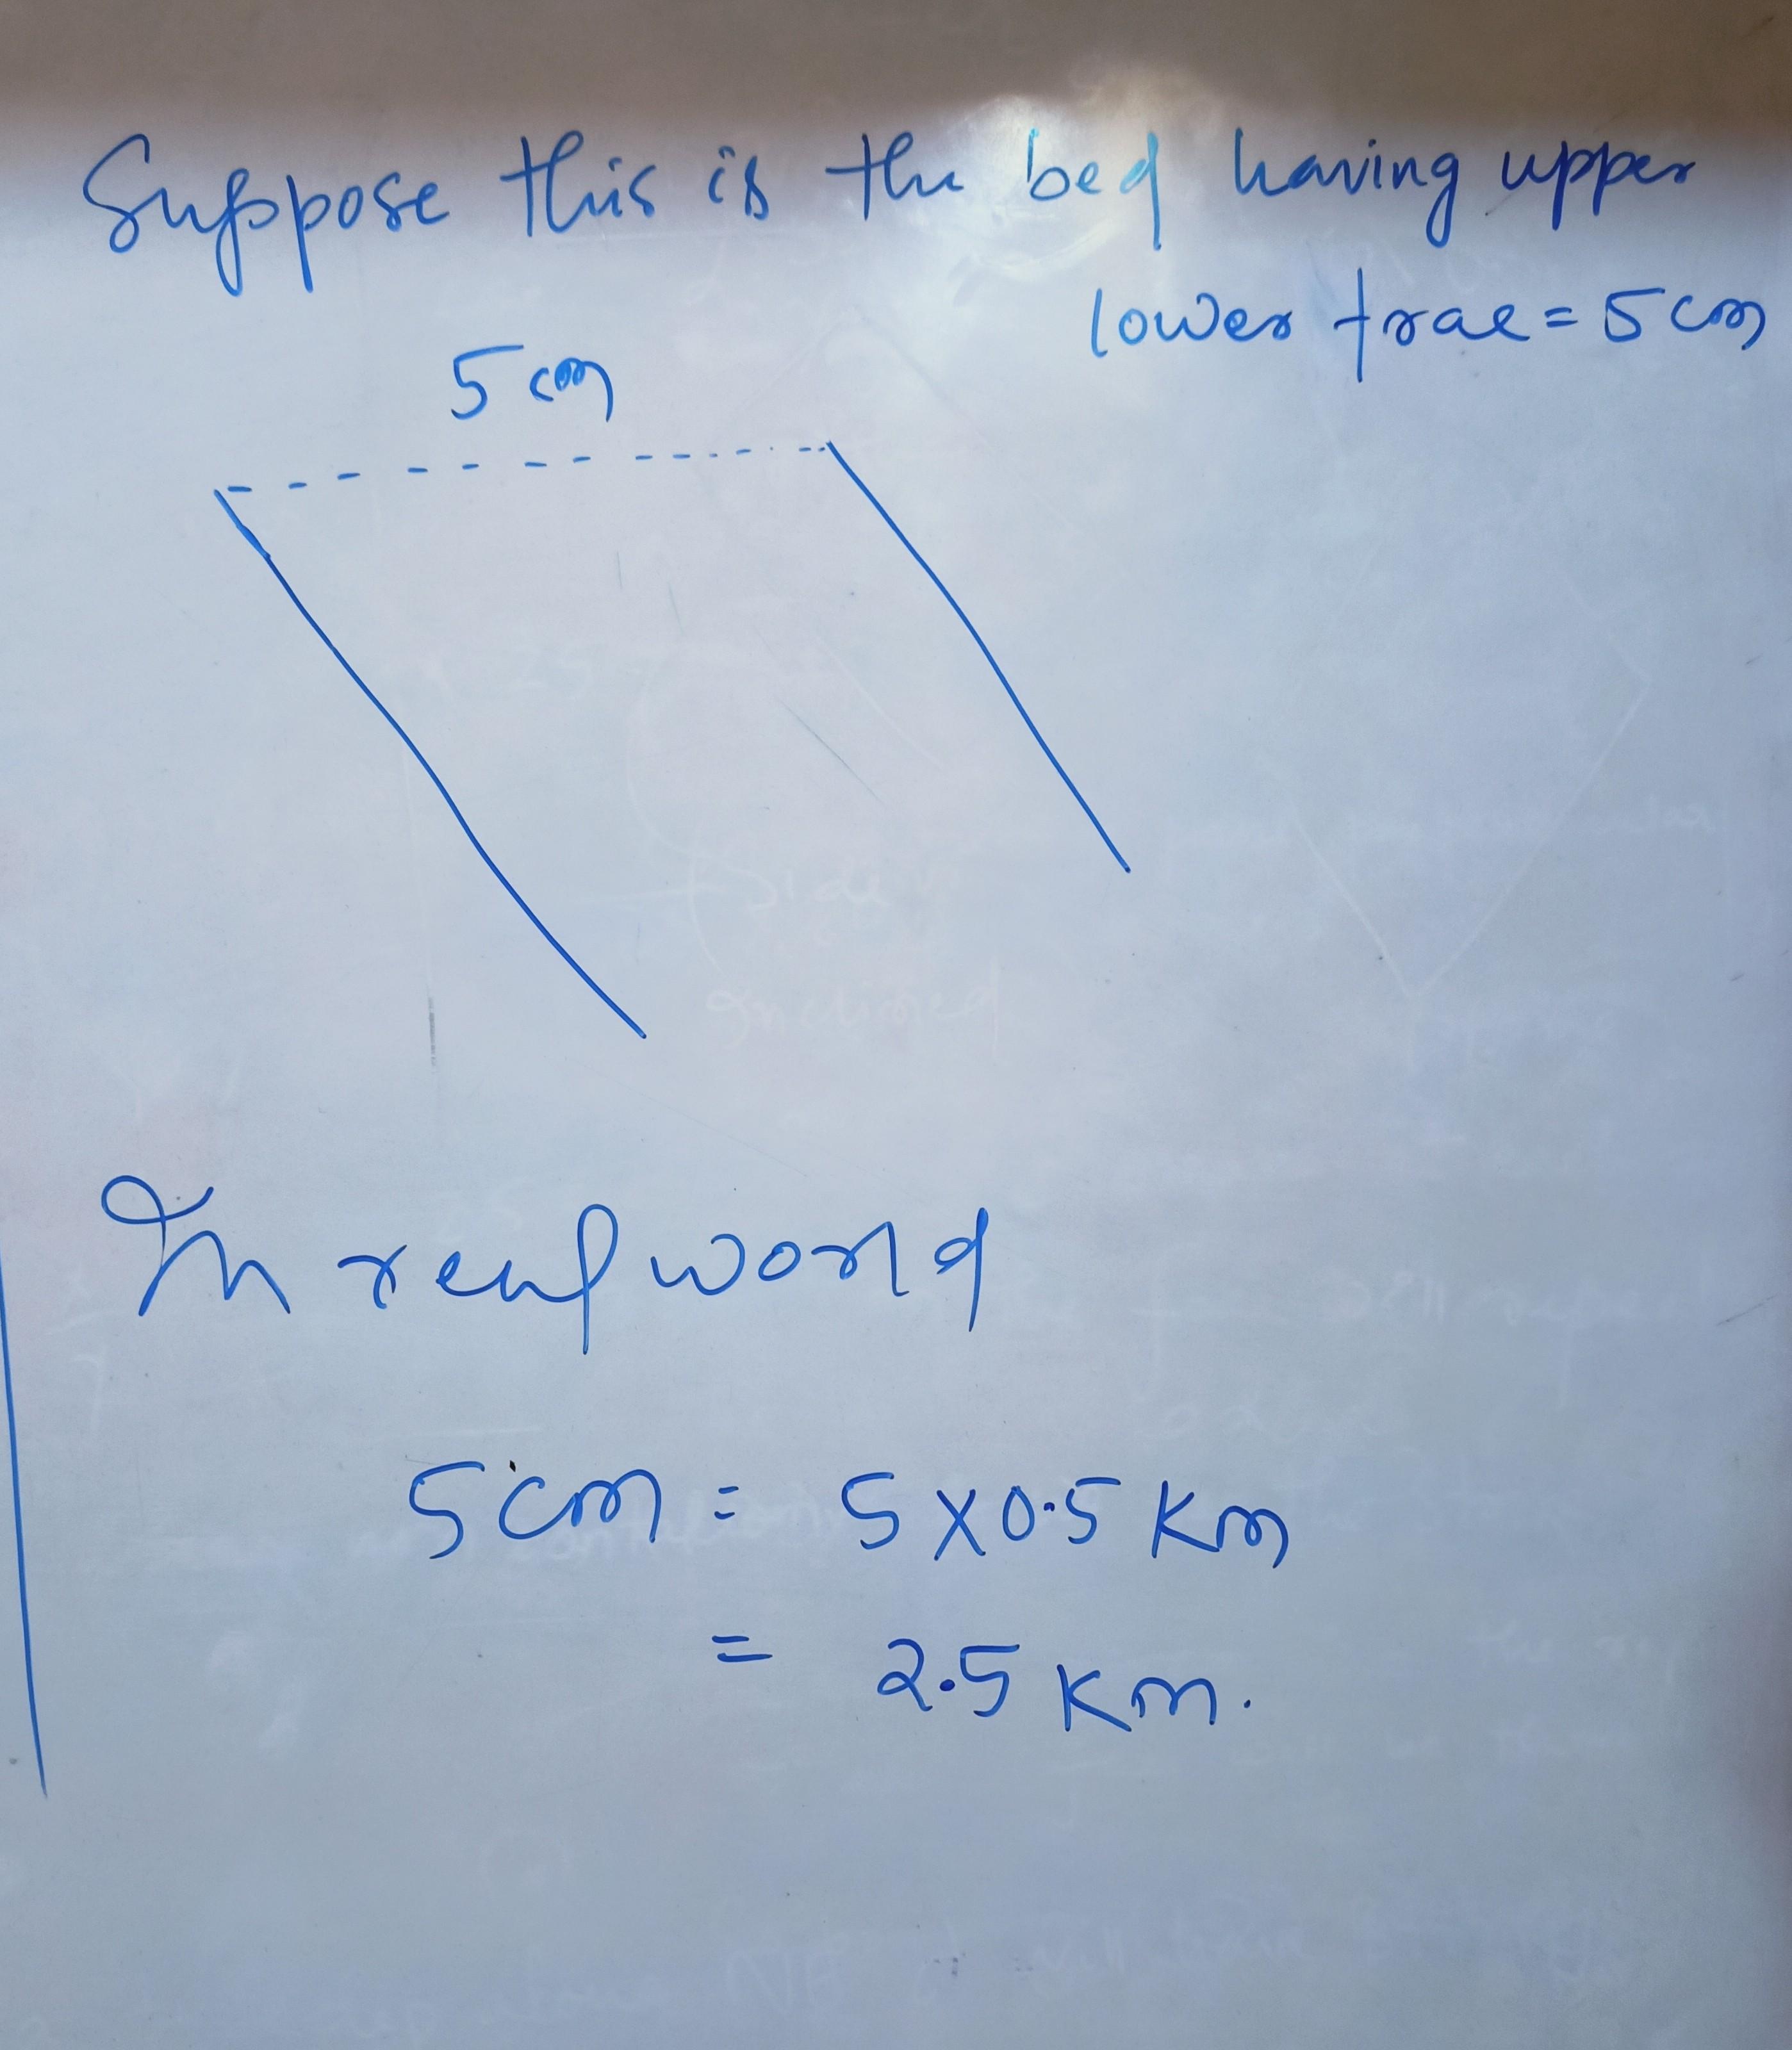 Suppose this is the bed having upper
lower trace = 5 cm
5 cm
In real world
5 cm = 5 X 0.5 Km
= 2.5 Km.